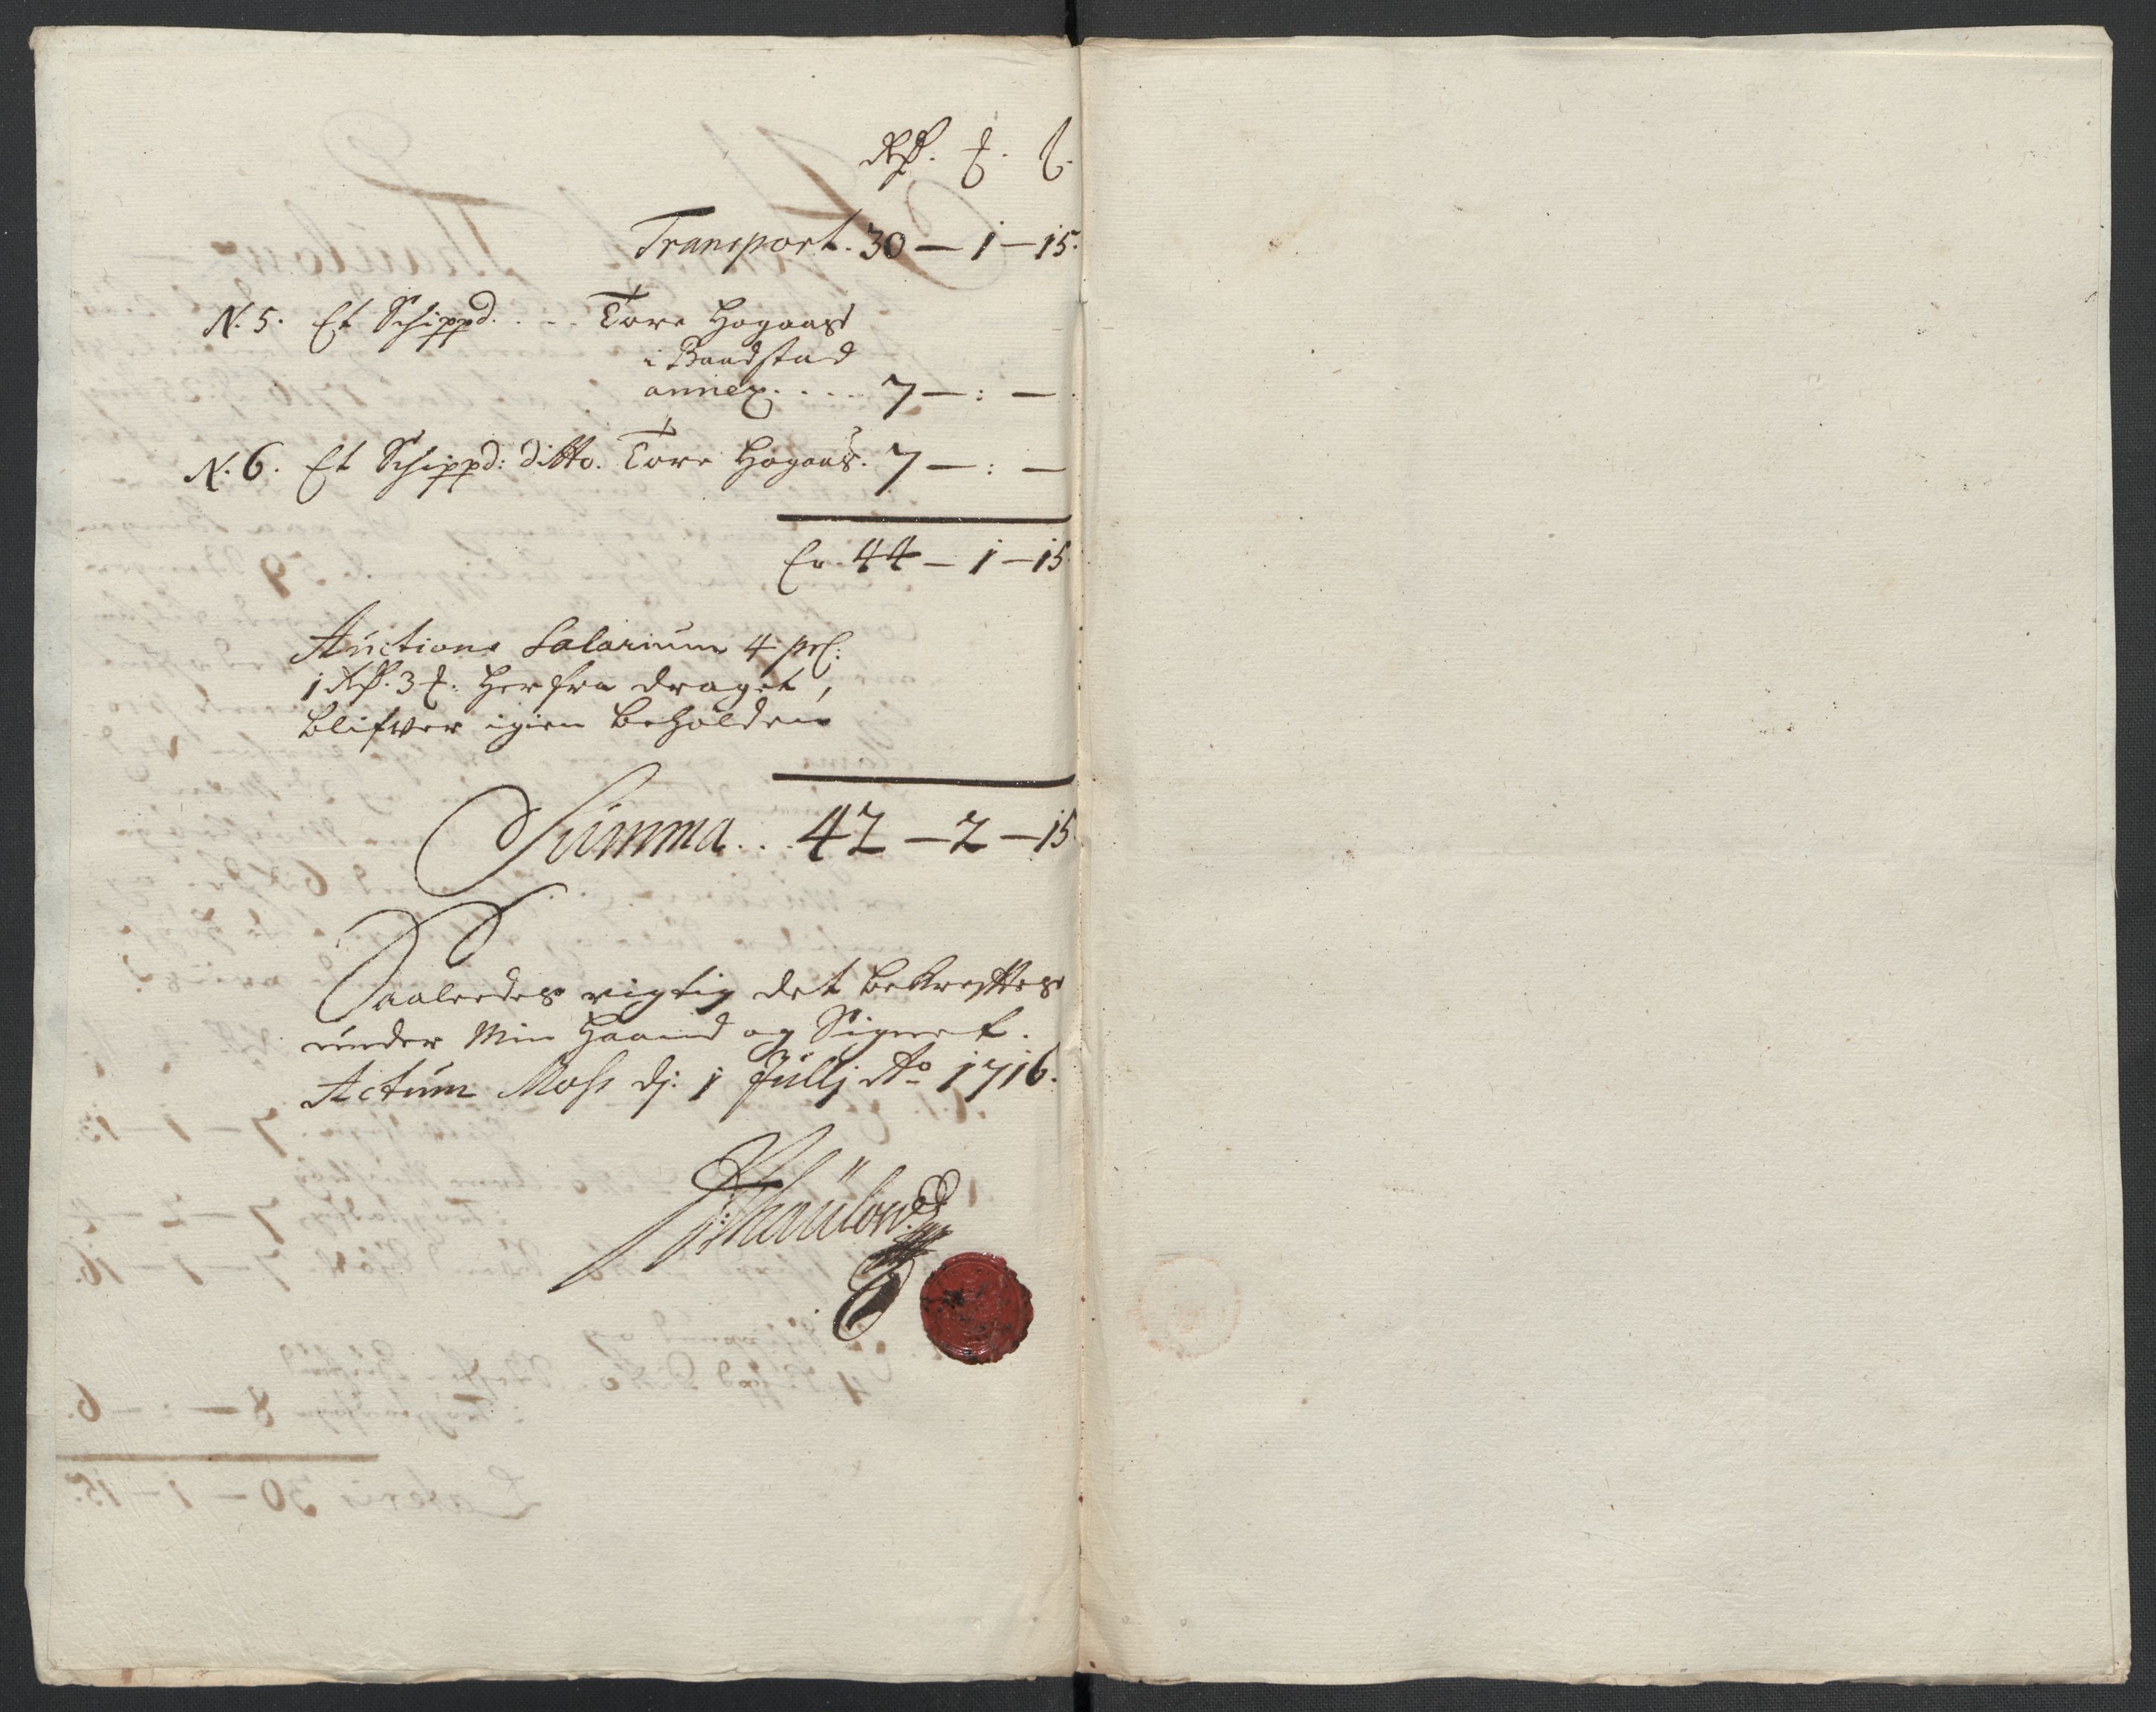 Rdr. ꝑ. ß.
Transport. 30 — 1 — 15.
N. 5. Et Schippd. . - . Tore Hogaas
i Baadstad
annex. . . . . 7 — : — .
N. 6. Et Schippd: ditto. Tore Hogaas. 7 — : —
Er. 44 — 1 — 15.
Auctions Salarium 4 prC:
1 Rdr. 3 ꝑ. Herfra draget,
blifver igien beholden
Summa. . . 42 — 2 — 15.
Saaledes rigtig det bekreftes
under Min Haand og Signet.
Actum Moss dj. 1 Julij Ao 1716.
Thaulow